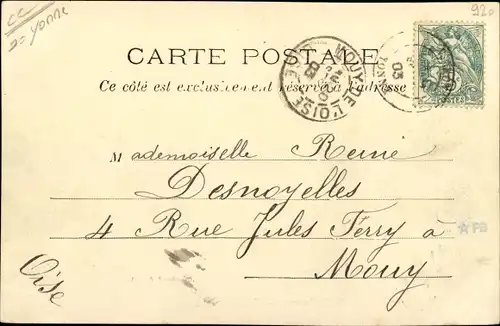 cc
= yonne
920
CARTE POSTALE
Ce côté est exclusivement réservé à l'adresse
MOUY DE L'OISE
OISE
03
YONNE
03
POSTES
Mademoiselle Reine
Desnoyelles
4 Rue Jules Ferry à
Mouy
Oise
PB